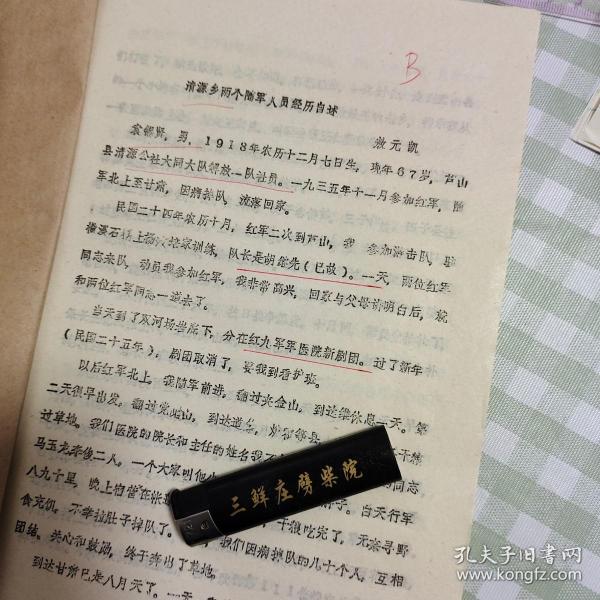 B
清源乡两个随军人员经历自述
敖元凯
袁锡贤，男，1918年农历十二月七日生，现年67岁，芦山
县清源公社大同大队解放一队社员。一九三五年十一月参加红军，随
军北上至甘肃，因病掉队，流落回家。
民国二十四年农历十月，红军二次到芦山，我参加游击队，驻
训练，队长是胡 先（已故）。一天，两位红军
同志来队，动员我参加红军，我非常高兴，回家与父母讲明白后，就
和两位红军同志一道去了。
当天到了双河场 底下，分在红九军军医院新剧团。过了新年
（民国二十五年），剧团取消了，要我到看护班。
以后红军北上，我随军前进，翻过夹金山，到达 休息一天。第
二天很早出发。翻过党岭山，到达道孚，炉霍
过草地。我们医院的院长和主任的姓名我不
马玉龙 二人。一个大家叫他 的同志
八九十里，晚上宿营在 子。白天行军
食充饥。不幸拉肚子掉队了。 干粮吃完了，无奈寻野
我们因病掉队的几十个人，互相
团结、关心和鼓励，终于奔出了草地。
到达甘肃已是八月天了。一天
三鲜庄劈柴院
孔夫子旧书网
www.kongfz.com